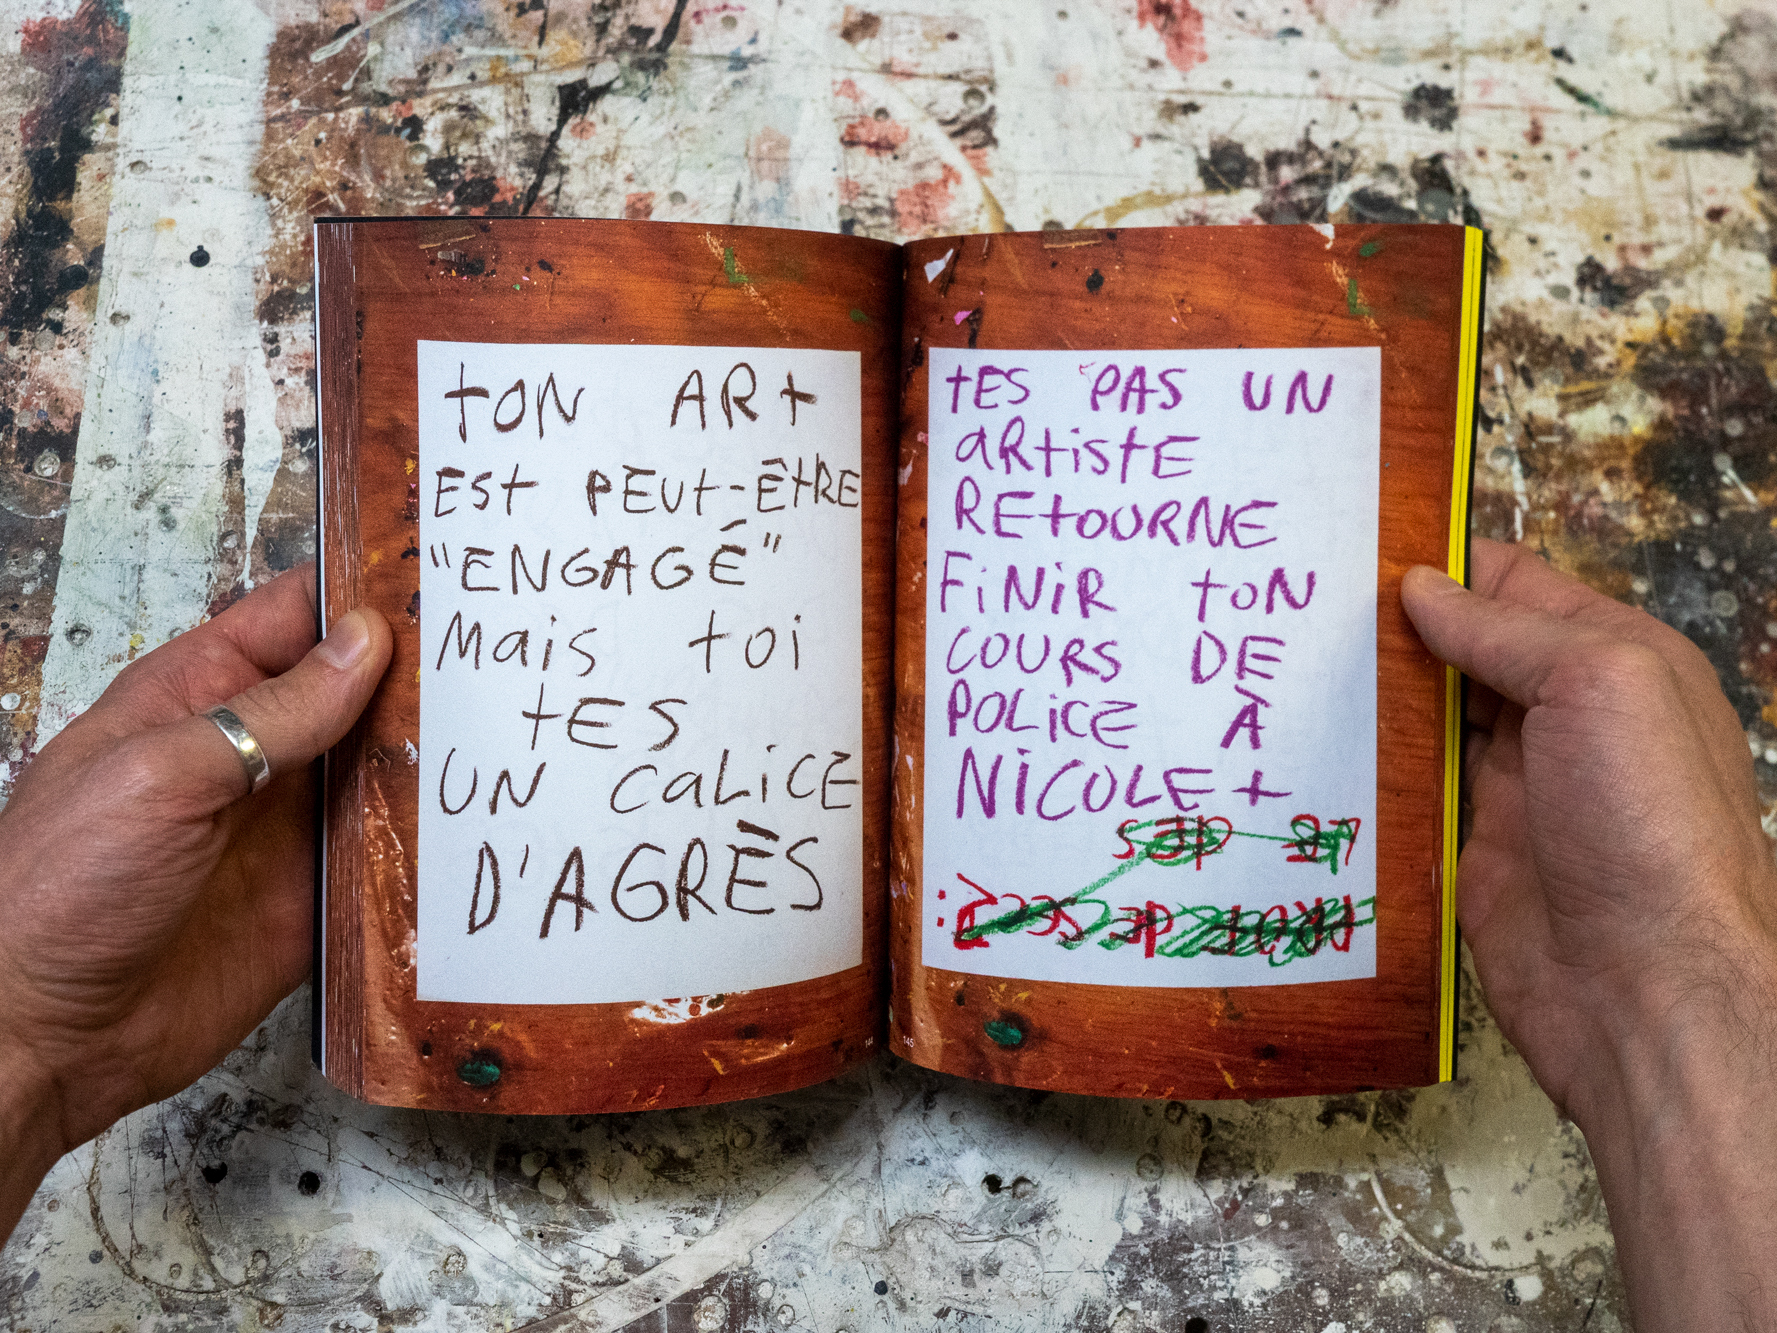 tON ARt
Est PEUt-ÊtRE
"ENGAGÉ"
Mais toi
tES
UN CaLiCE
D'AGRÈS
144
tES PAS UN
aRtistE
REtOURNE
FiNiR toN
COURS DE
POLiCE À
NiCOLEt
145